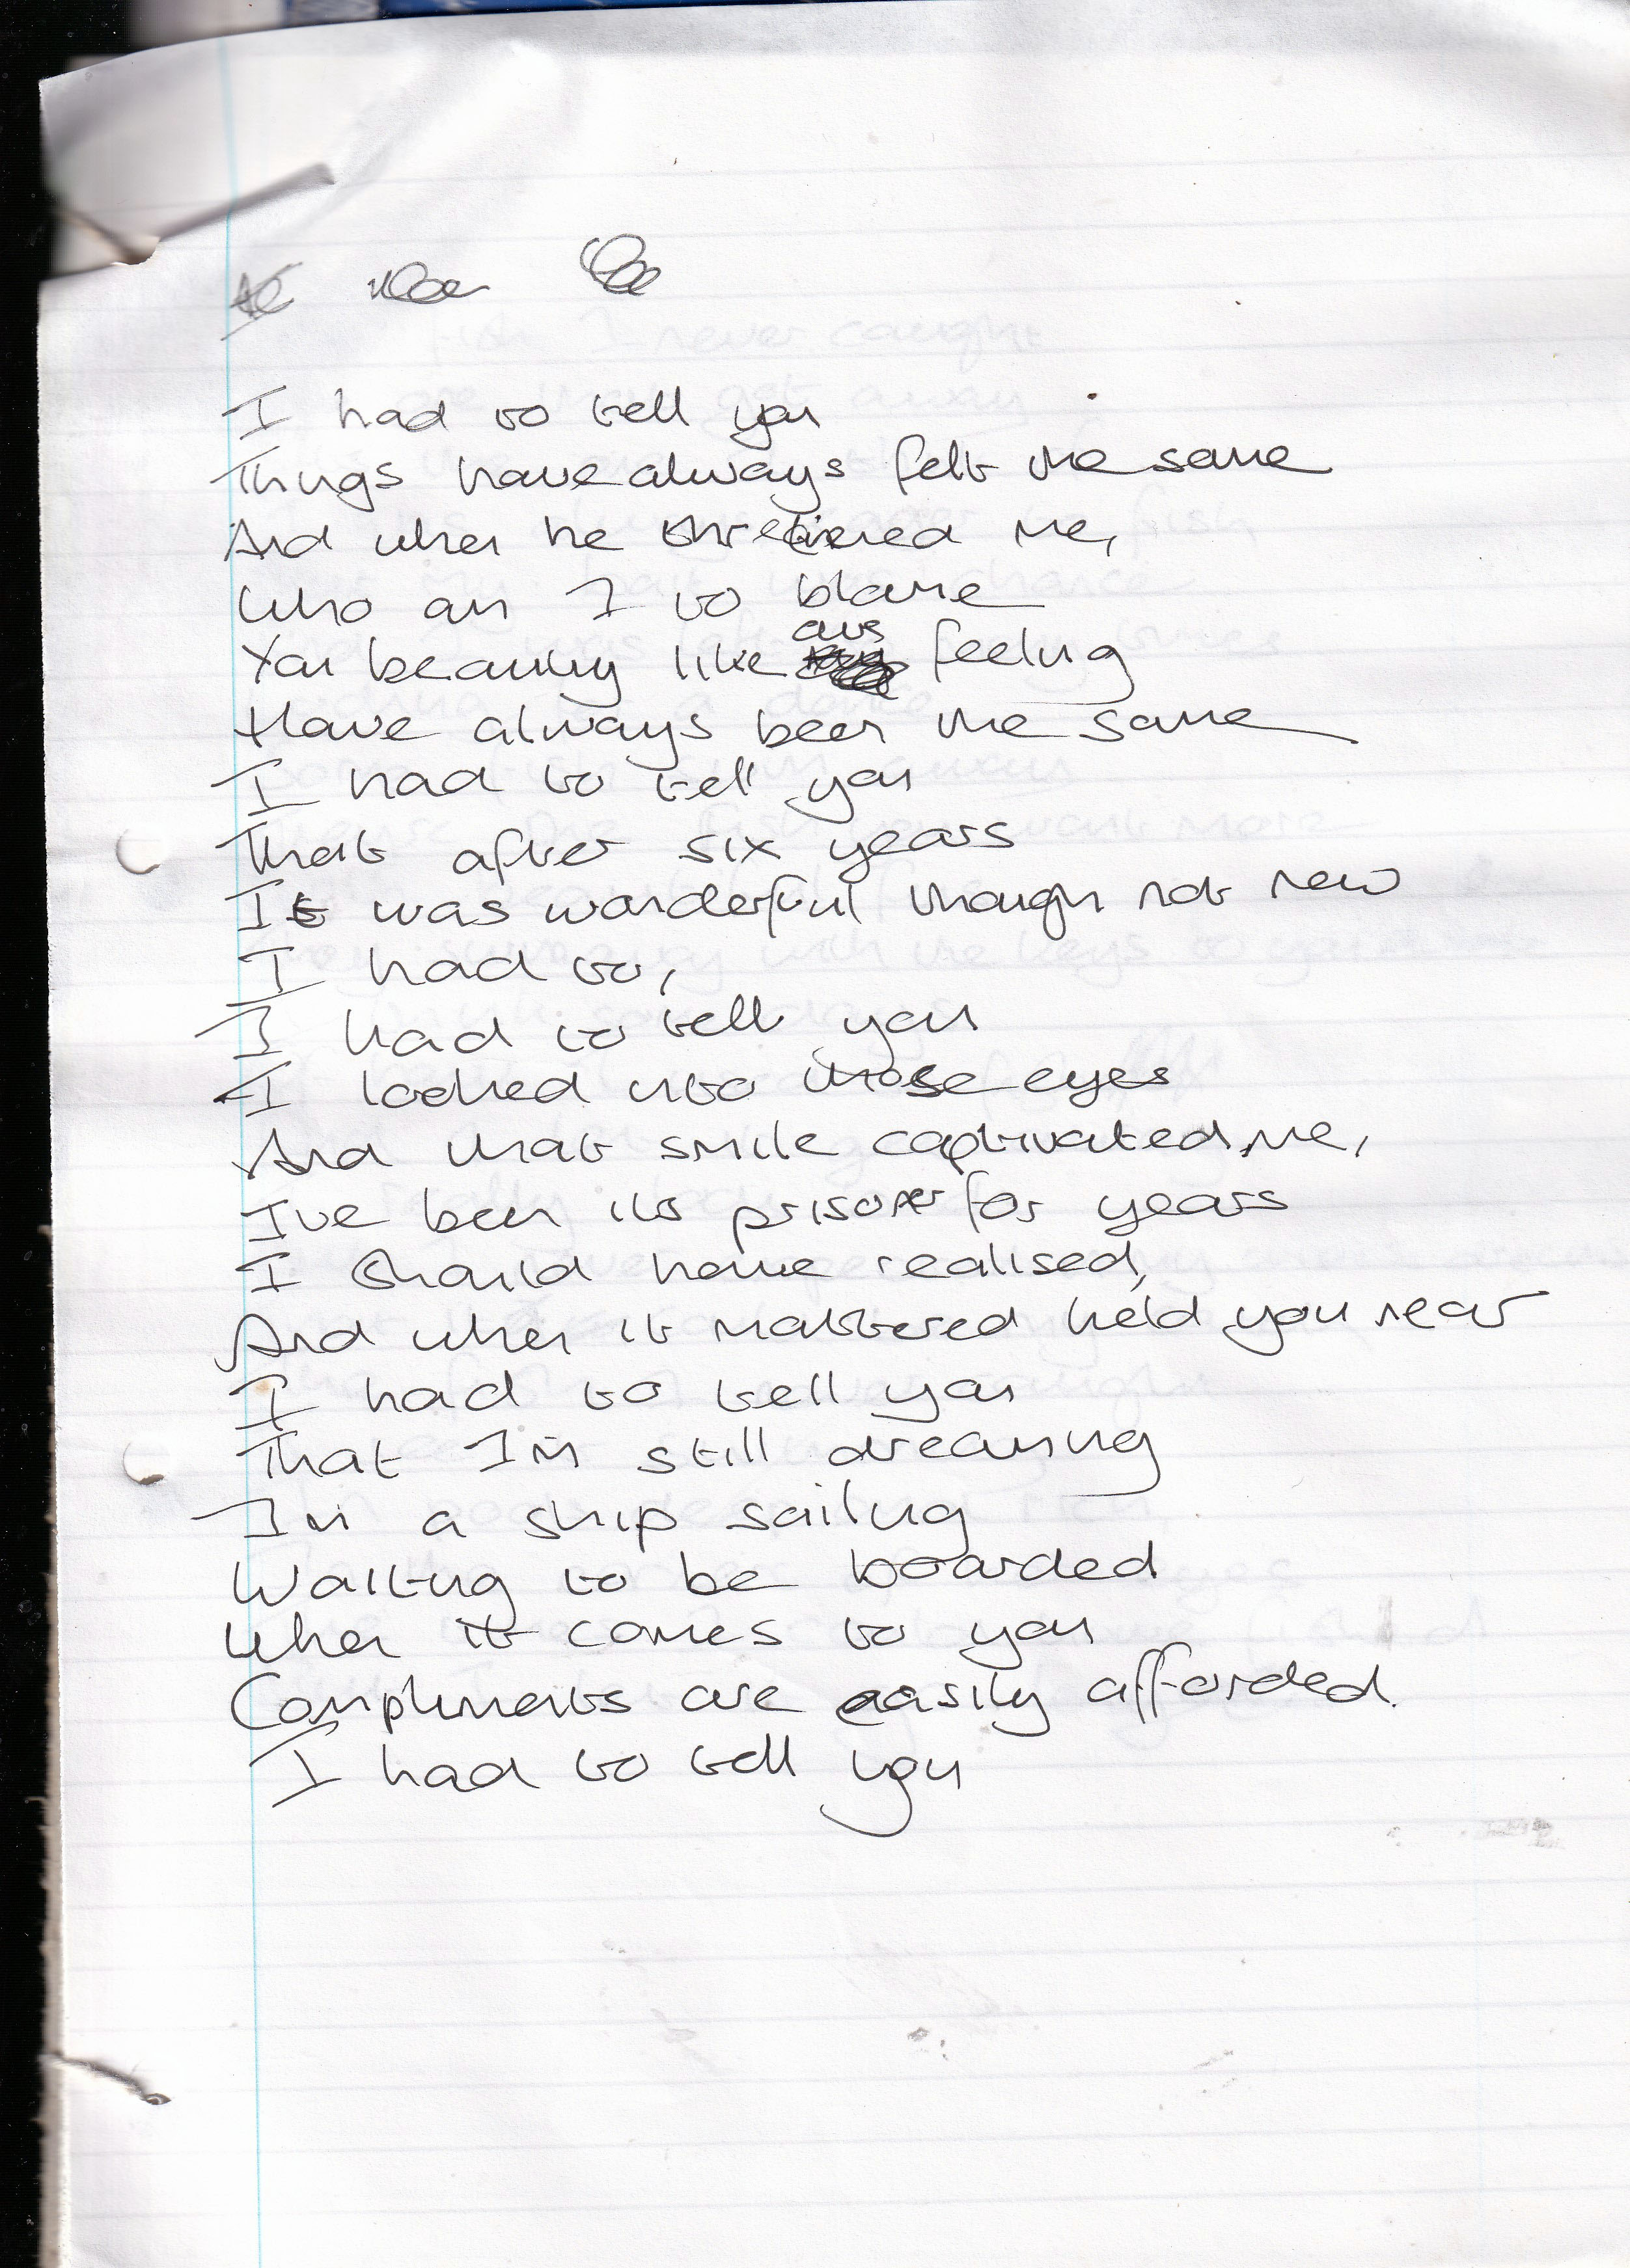 I had to tell you
Things have always felt the same
And when he threatened me,
Who am I to blame
Your beauty like our feeling
Have always been the same
I had to tell you
That after six years
It was wonderful though not new
I had to,
I had to tell you
I looked into those eyes
And that smile captivated me,
I've been its prisoner for years
I should have realised,
And when it mattered held you near
I had to tell you
That I'm still dreaming
I'm a ship sailing
Waiting to be boarded
When it comes to you
Compliments are easily afforded.
I had to tell you